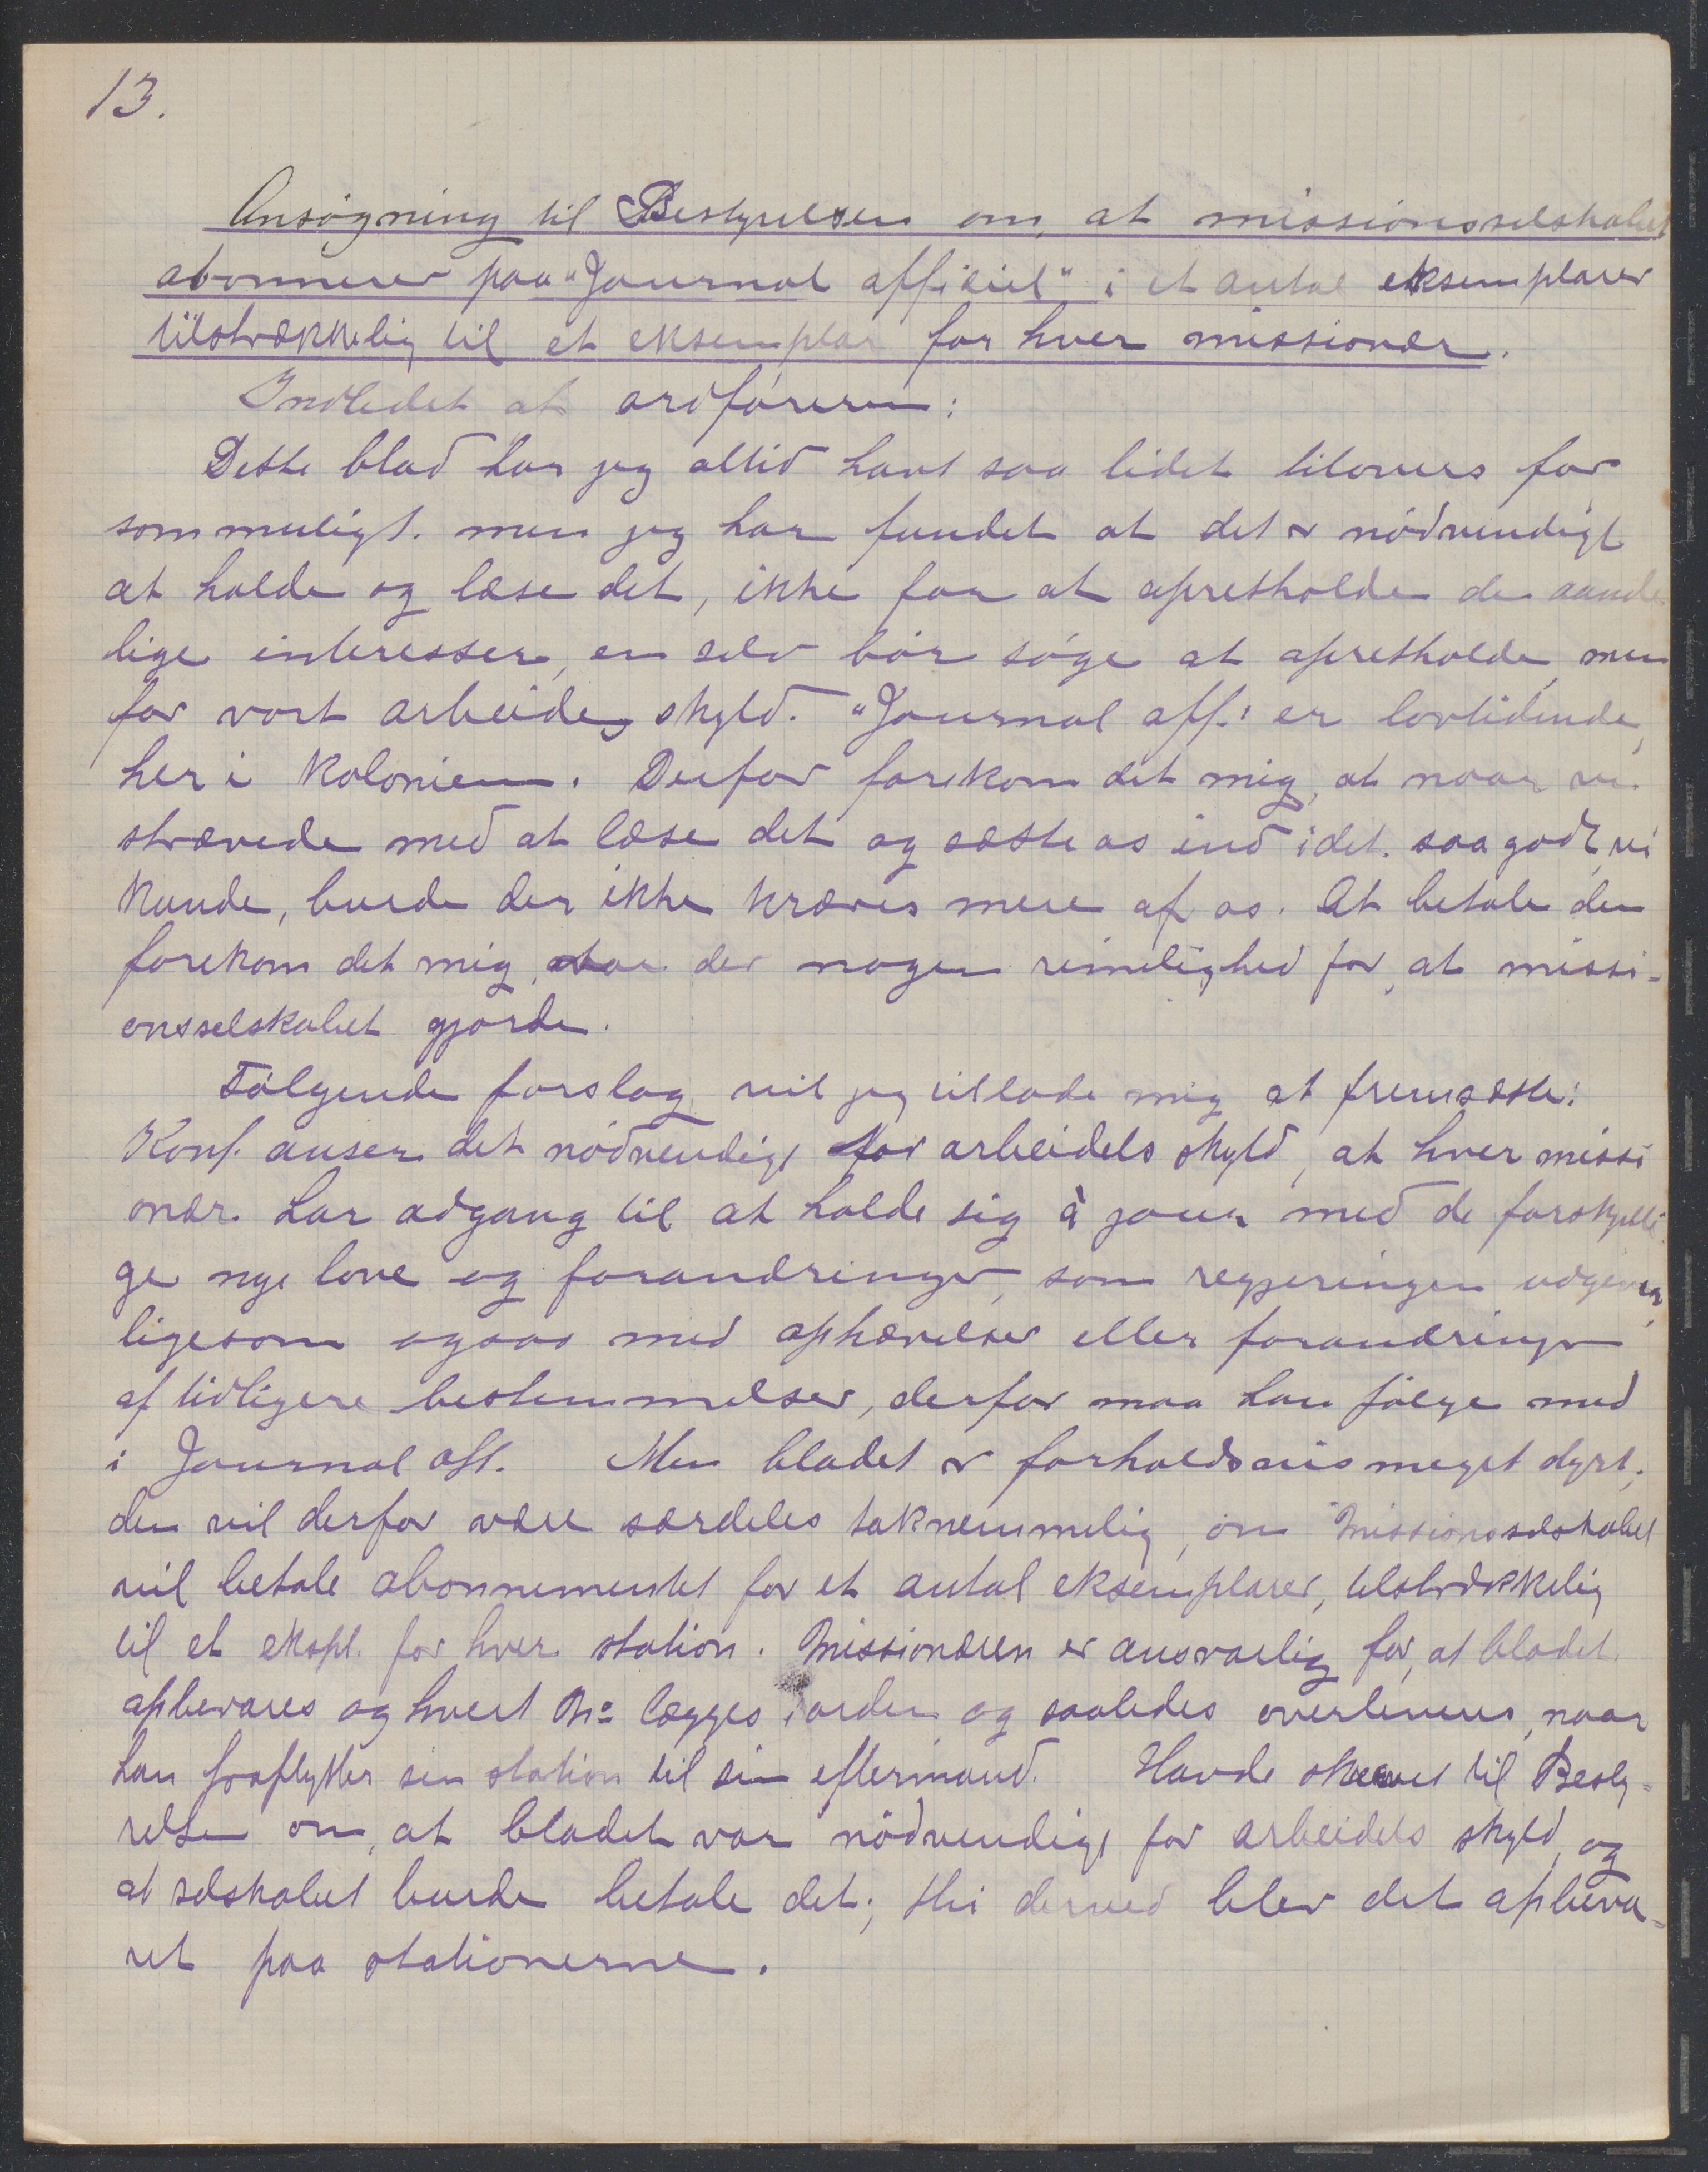 13.
Ansøgning til Bestyrelsen om, at missionsselskabet
abonnerer paa "Journal officiel" i et antal eksemplarer
tilstrækkelig til et eksemplar for hver missionær.
Indledet af ordføreren:
Dette blad har jeg altid havt saa lidet tilovers for
som muligt. men jeg har fundet at det er nödvendigt
at holde og læse det, ikke for at opretholde de aande
lige interesser, en selv bör söge at opretholde, men
for vort arbeides skyld. "Journal off." er lovtidende,
her i kolonien. Derfor forekom det mig, at naar vi
strævede med at læse det og sætte os ind i det. saa godt vi
kunde, burde der ikke kræves mere af os. At betale den
forekom det mig, var der nogen rimelighed for, at missi-
onsselskabet gjorde.
Fölgende forslag vil jeg tillade mig at fremsætte:
Konf. anser det nödvendigt for arbeidets skyld, at hver missi
onær har adgang til at holde sig à jour med de forskjelli
ge nye love og forandringer, som regjeringen udgiver,
ligesom ogsaa med ophævelser eller forandringer
af tidligere bestemmelser, derfor maa han fölge med
i Journal off. Men bladet er forholdsvis meget dyrt;
den vil derfor være særdeles taknemmelig, om missionsselskabet
vil betale abonnementet for et antal eksemplarer, tilstrækkelig
til et ekspl. for hver station. Missionæren er ansvarlig for, at bladet
opbevares og hvert No lægges i orden og saaledes overleveres, naar
han fraflytter sin station til sin eftermand. Havde skrevet til Besty-
relsen om, at bladet var nödvendigt for arbeidets skyld, og
at selskabet burde betale det; thi derved blev det opbeva-
ret paa stationerne.